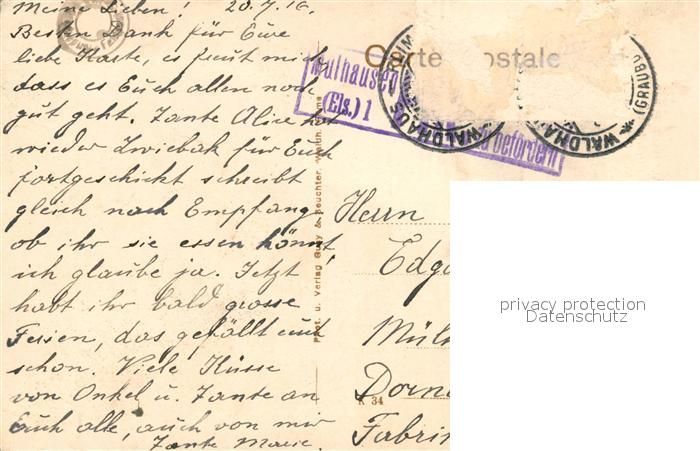 Meine Lieben! 20.7.16.
Besten Dank für Eure
liebe Karte, es freut mich
dass es Euch allen noch
gut geht. Tante Alice hat
wieder Zwiebak für Euch
fortgeschickt schreibt
gleich nach Empfang
ob ihr sie essen könnt
ich glaube ja. Jetzt
habt ihr bald grosse
Ferien, das gefällt euch
schon. Viele Küsse
von Onkel u. Tante an
Euch alle, auch von mir
Tante Marie.
Carte Postale
Mülhausen
(Els.) 1
befördern
WALDHAUS
WALDHAUS
(GRAUBÜ
Phot. u. Verlag
K 34
Herrn
Edga
Mülh
Dorna
Fabrik
privacy protection
Datenschutz